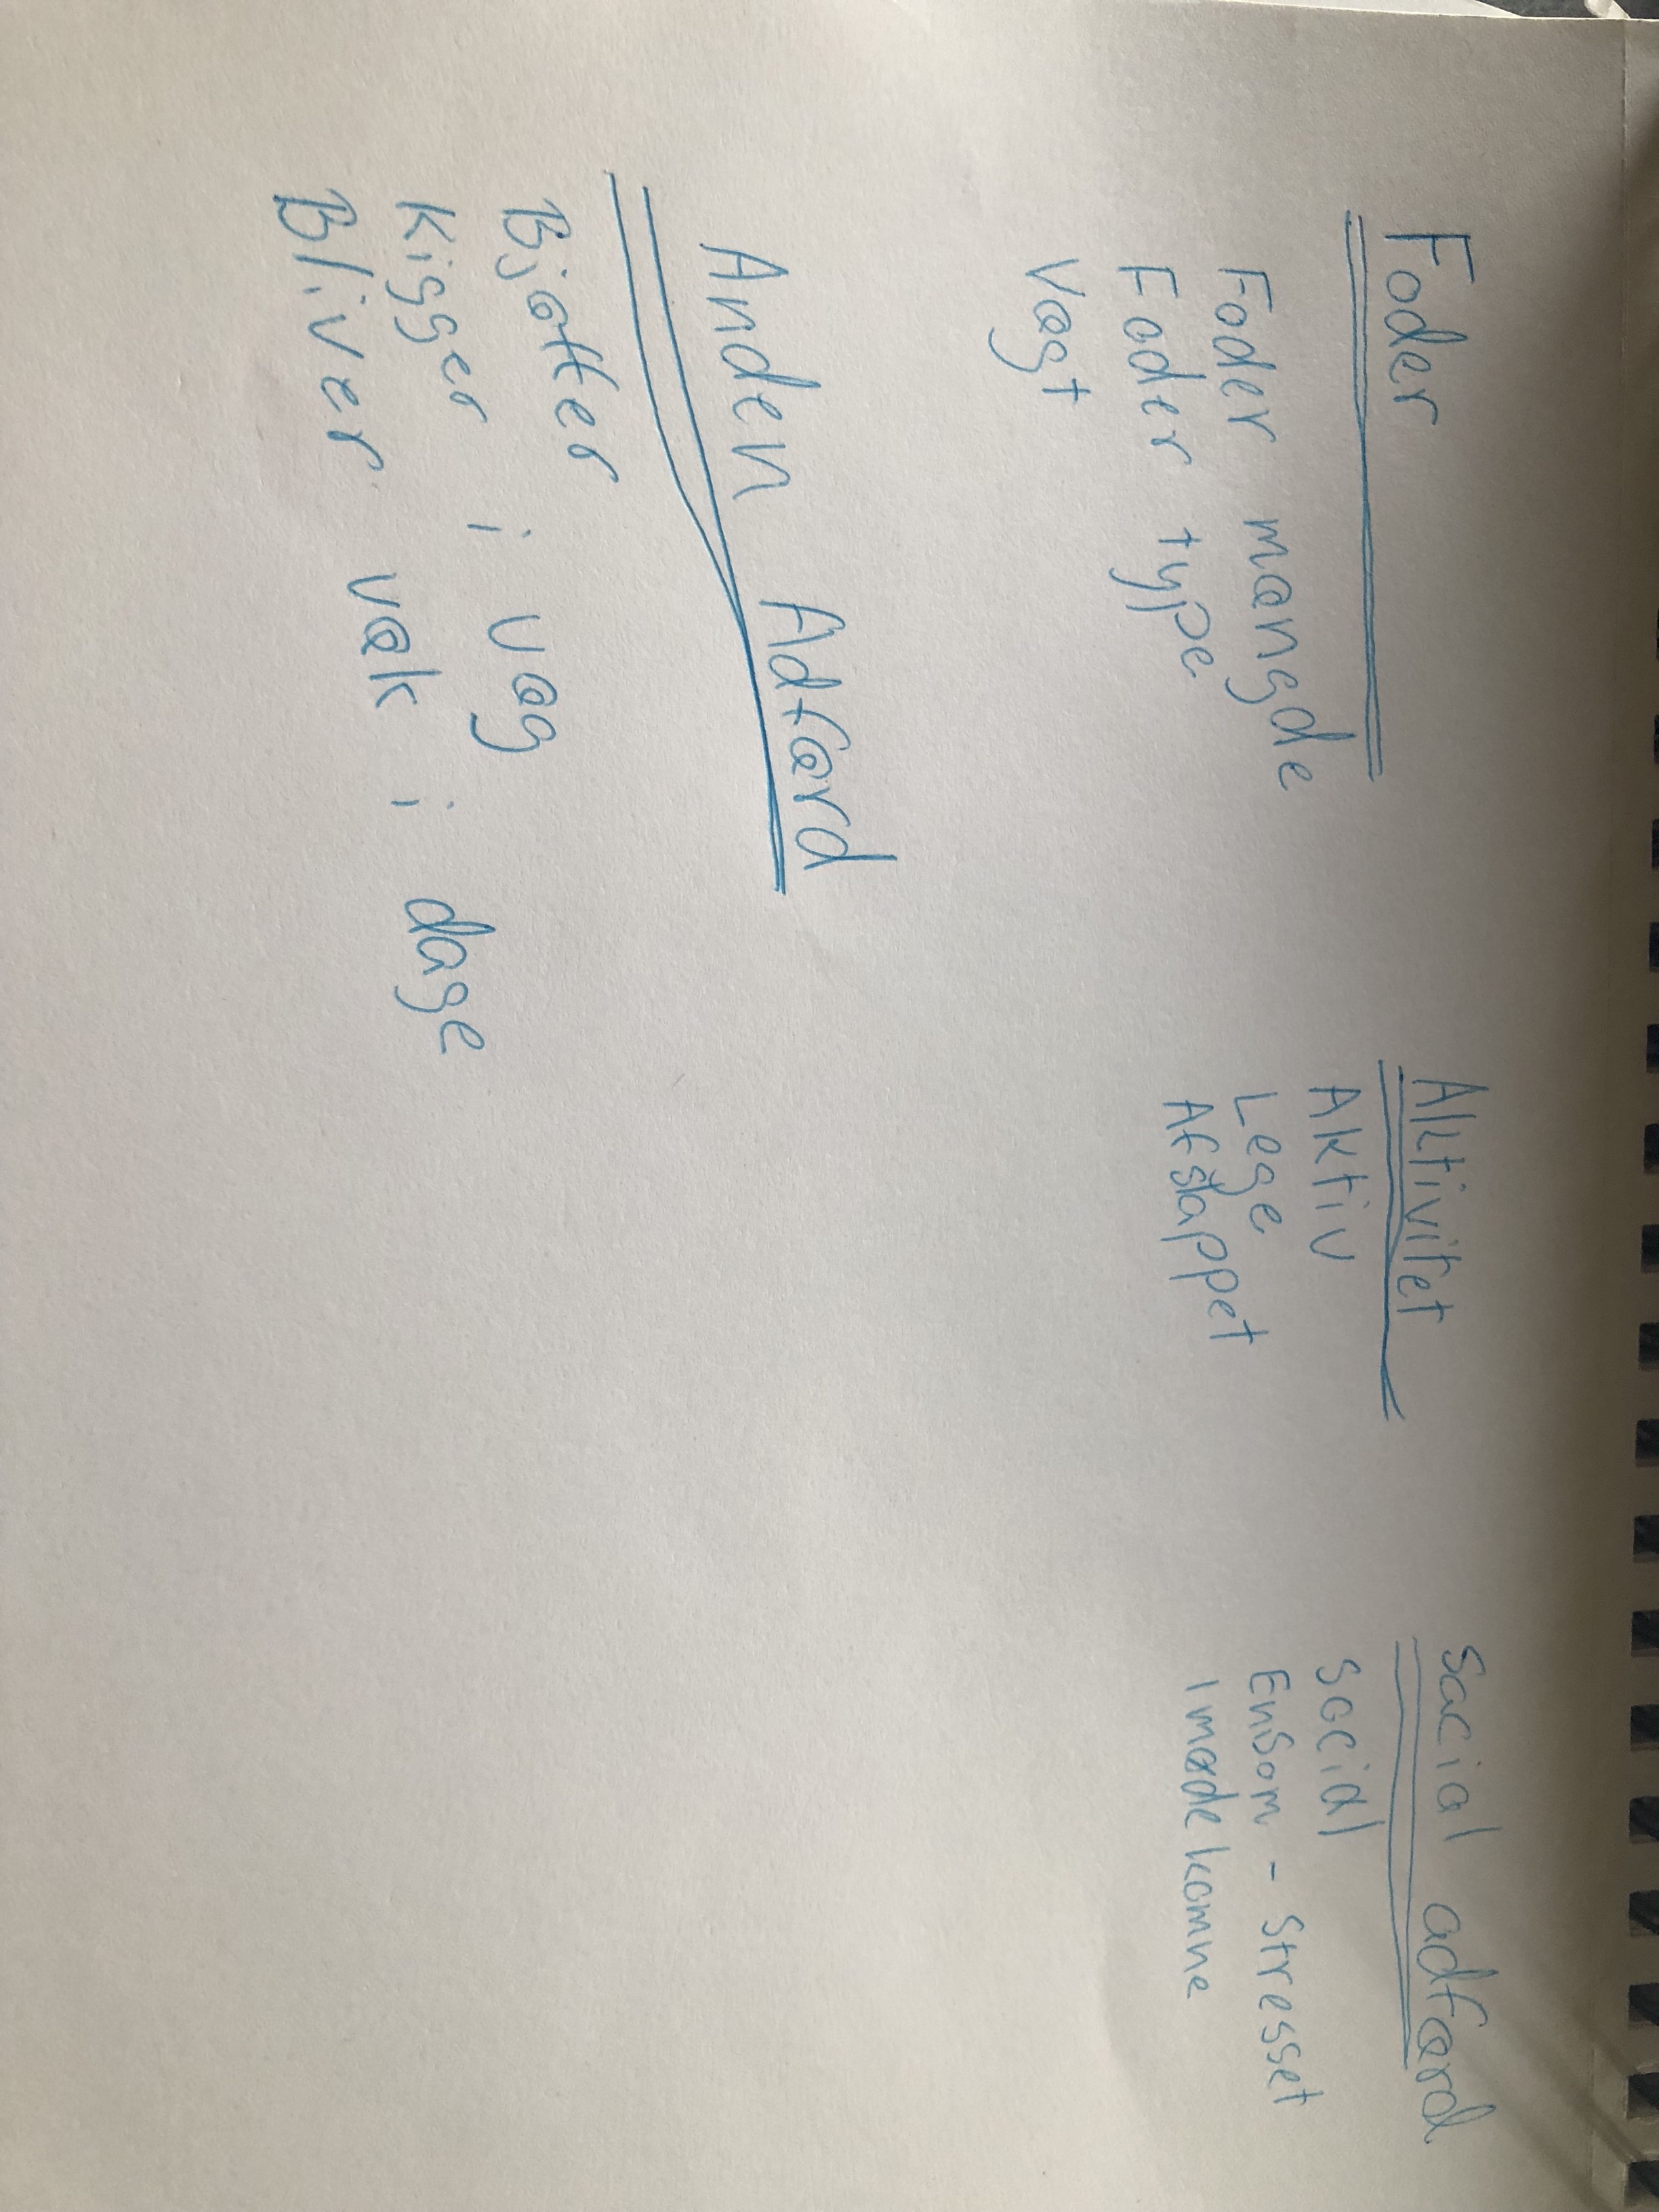 Foder
Foder mængde
Foder type
Vægt
Aktivitet
Aktiv
Lege
Afslappet
Social adfærd
Social
Ensom - Stresset
Imødekomne
Anden Adfærd
Kigger i væg
Bliver væk i dage